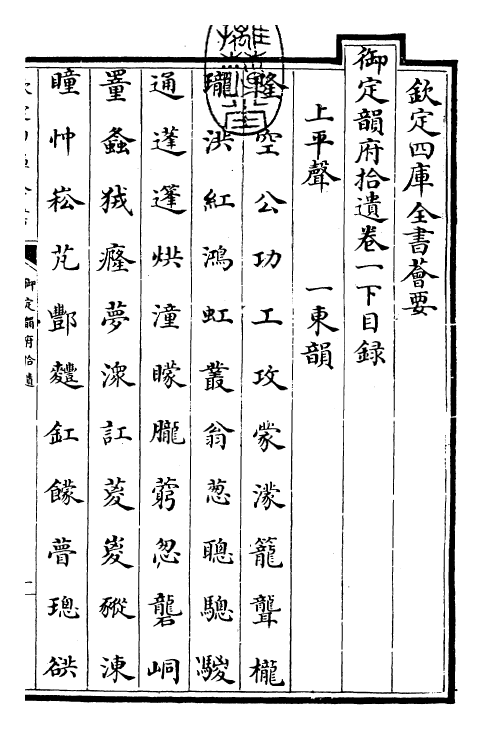 欽定四庫全書薈要
御定韻府拾遺卷一下目録
上平聲 一東韻
隆空公功工攻蒙濛籠聾櫳
瓏洪紅鴻虹叢翁葱聰驄騣
通蓬篷烘潼曚朧藭怱礱峒
罿螽狨癃夢潨訌葼嵏豵涷
瞳忡崧芃酆麷釭饛瞢璁谼
御定韻府拾遺
一